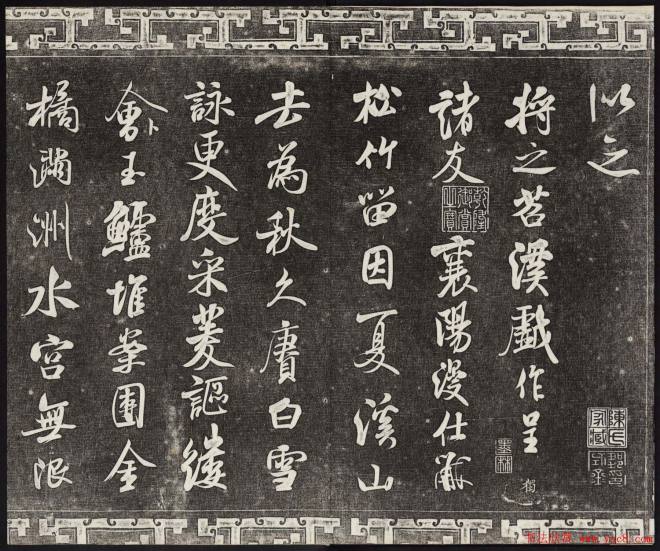 以之
將之苕溪戲作呈
諸友 襄陽漫仕黻
松竹留因夏溪山
去為秋久賡白雪
詠更度采菱謳縷
會卜玉鱸堆案團金
橘滿洲水宮無限
墨林
书法欣赏 www.yac8.com